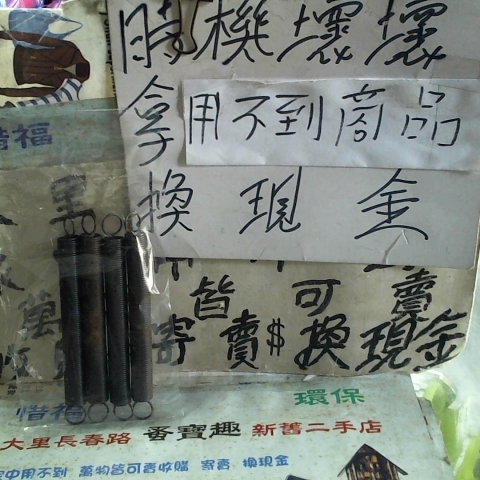 時機壞壞
拿用不到商品
換現金
惜福
里
皆可賣
萬
寄賣$換現金
惜福 環保
大里長春路 蚤寶趣 新舊二手店
家中用不到 萬物皆可賣收購 寄賣 換現金